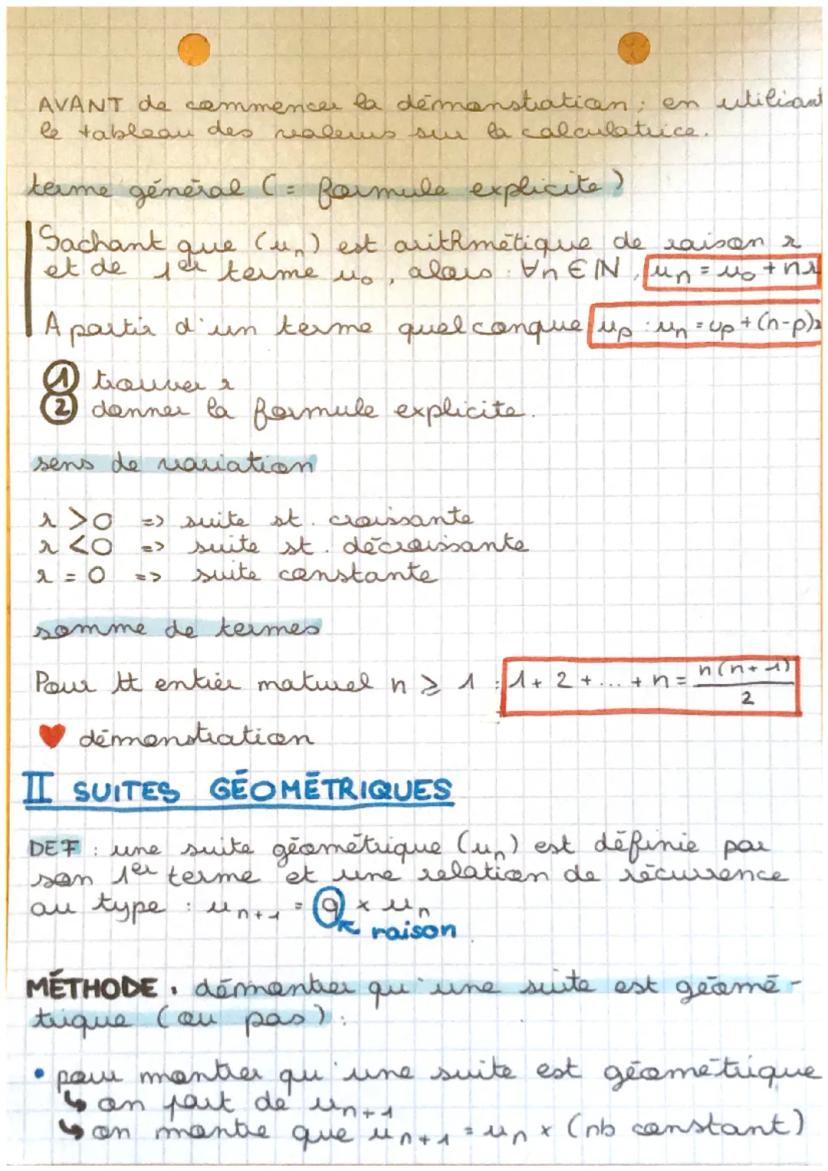 AVANT de commencer la démonstration ; en utilisant
le tableau des valeurs sur la calculatrice.
terme général (= formule explicite)
Sachant que (uₙ) est arithmétique de raison r
et de 1er terme u₀, alors ∀n ∈ ℕ, uₙ = u₀ + nr
A partir d'un terme quelconque uₚ : uₙ = uₚ + (n-p)r
① trouver r
② donner la formule explicite.
sens de variation
r > 0 => suite st. croissante
r < 0 => suite st. décroissante
r = 0 => suite constante
somme de termes
Pour tt entier naturel n ⩾ 1 : 1 + 2 + ... + n = n(n+1)/2
♥ démonstration
II SUITES GÉOMÉTRIQUES
DEF : une suite géométrique (uₙ) est définie par
son 1er terme et une relation de récurrence
au type : uₙ₊₁ = q × uₙ
raison
MÉTHODE . démontrer qu'une suite est géomé-
trique (ou pas) :
• pour montrer qu'une suite est géométrique
↳ on part de uₙ₊₁
↳ on montre que uₙ₊₁ = uₙ × (nb constant)